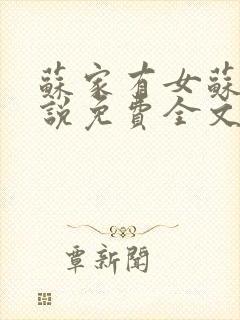 蘇家有女蘇
說免費全文
覃新聞